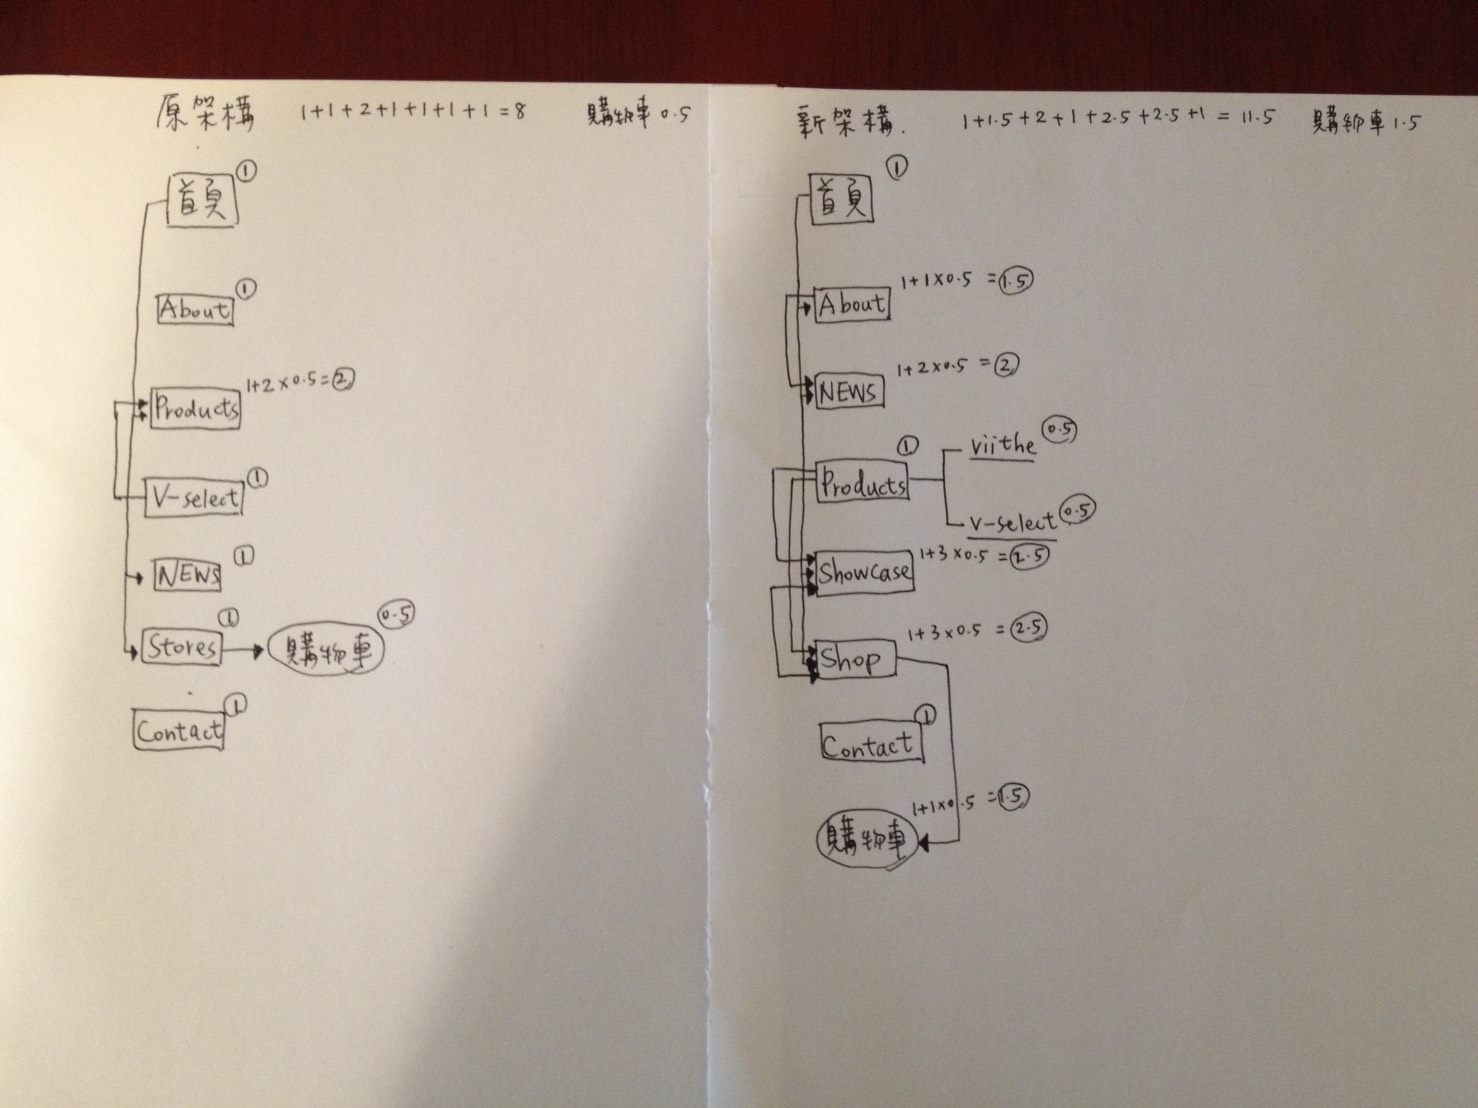 原架構 1+1+2+1+1+1+1=8 購物車 0.5
首頁 ①
About ①
Products 1+2×0.5=②
V-select ①
NEWS ①
Stores ① 購物車 0.5
Contact ①
新架構. 1+1.5+2+1+2.5+2.5+1=11.5 購物車 1.5
首頁 ①
About 1+1×0.5=1.5
NEWS 1+2×0.5=②
Products ① viithe 0.5
v-select 0.5
Showcase 1+3×0.5=2.5
Shop 1+3×0.5=2.5
Contact ①
購物車 1+1×0.5=1.5